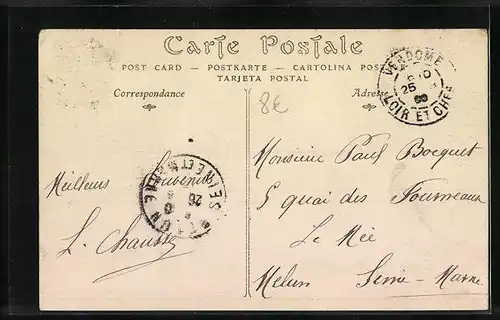 Carte Postale
POST CARD — POSTKARTE — CARTOLINA POSTALE
TARJETA POSTAL
Correspondance
Adresse
8€
VENDOME
25
LOIR ET CHER
Meilleurs Souvenirs
L. Chausse
MELUN
26
SEINE ET MARNE
Monsieur Paul Bocquet
5 quai des Fourneaux
Le Mée
Melun Seine-Marne